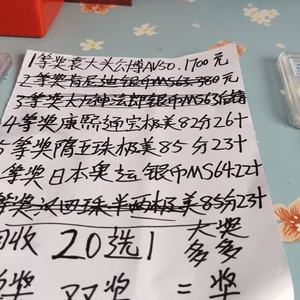 1等奖袁大头公博AU50.1700元
2等奖肯尼迪银币MS63.380元
3等奖大力神法郎银币MS63
4等奖康熙通宝极美82分26十
5等奖隋五珠极美85分23十
等奖日本奥运银币MS6422十
等奖汉四珠半两极美85分23十
回收 20选1 大奖多多
等奖 双奖 = 奖